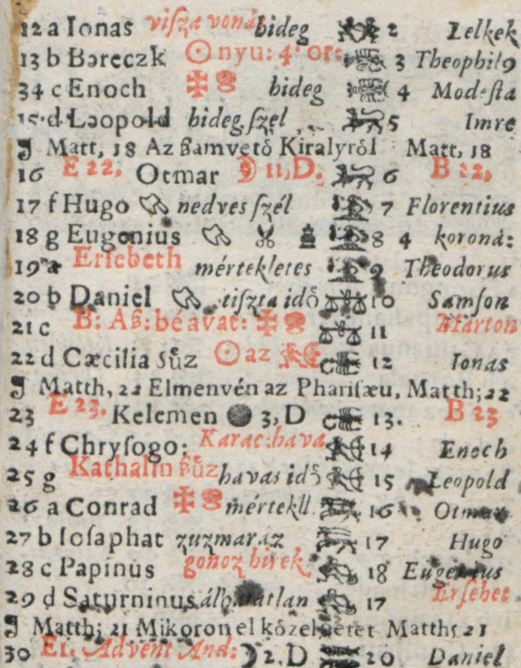 12 a Ionas visza voná bideg 2 Lelkek
13 b Bereczk nyu: 4 or: 3 Theophil9
34 c Enoch bideg 4 Modesta
15 d Leopold bideg szel 5 Imre
Matt, 18 Az ßamvetö Kiralyról Matt, 18
16 E 22, Otmar 11, D. 6 B 22,
17 f Hugo nedves szél 7 Florentius
18 g Eugenius 8 4 koroná:
19 a Ersebeth mértekletes 9 Theodorus
20 b Daniel tiszta idö 10 Samson
21 c B: Aß: béavat: 11 Márton
22 d Cæcilia sůz az 12 Ionas
Matth, 22 Elmenvén az Pharisæu, Matth; 22
23 E 23. Kelemen 3, D 13. B 23
24 f Chrysogo: Karac: hava 14 Enoch
25 g Kathalin ßůz havas idö 15 Leopold
26 a Conrad mértekll. 16 Otmar
27 b Iosaphat zuzmaraz 17 Hugo
28 c Papinus gonoz hirek 18 Eugenius
29 d Saturninus álhatatlan 17 Ersebet
Matth; 21 Mikoron el közelgetet Matth; 21
30 E1. Advent And: 2. D 20 Daniel